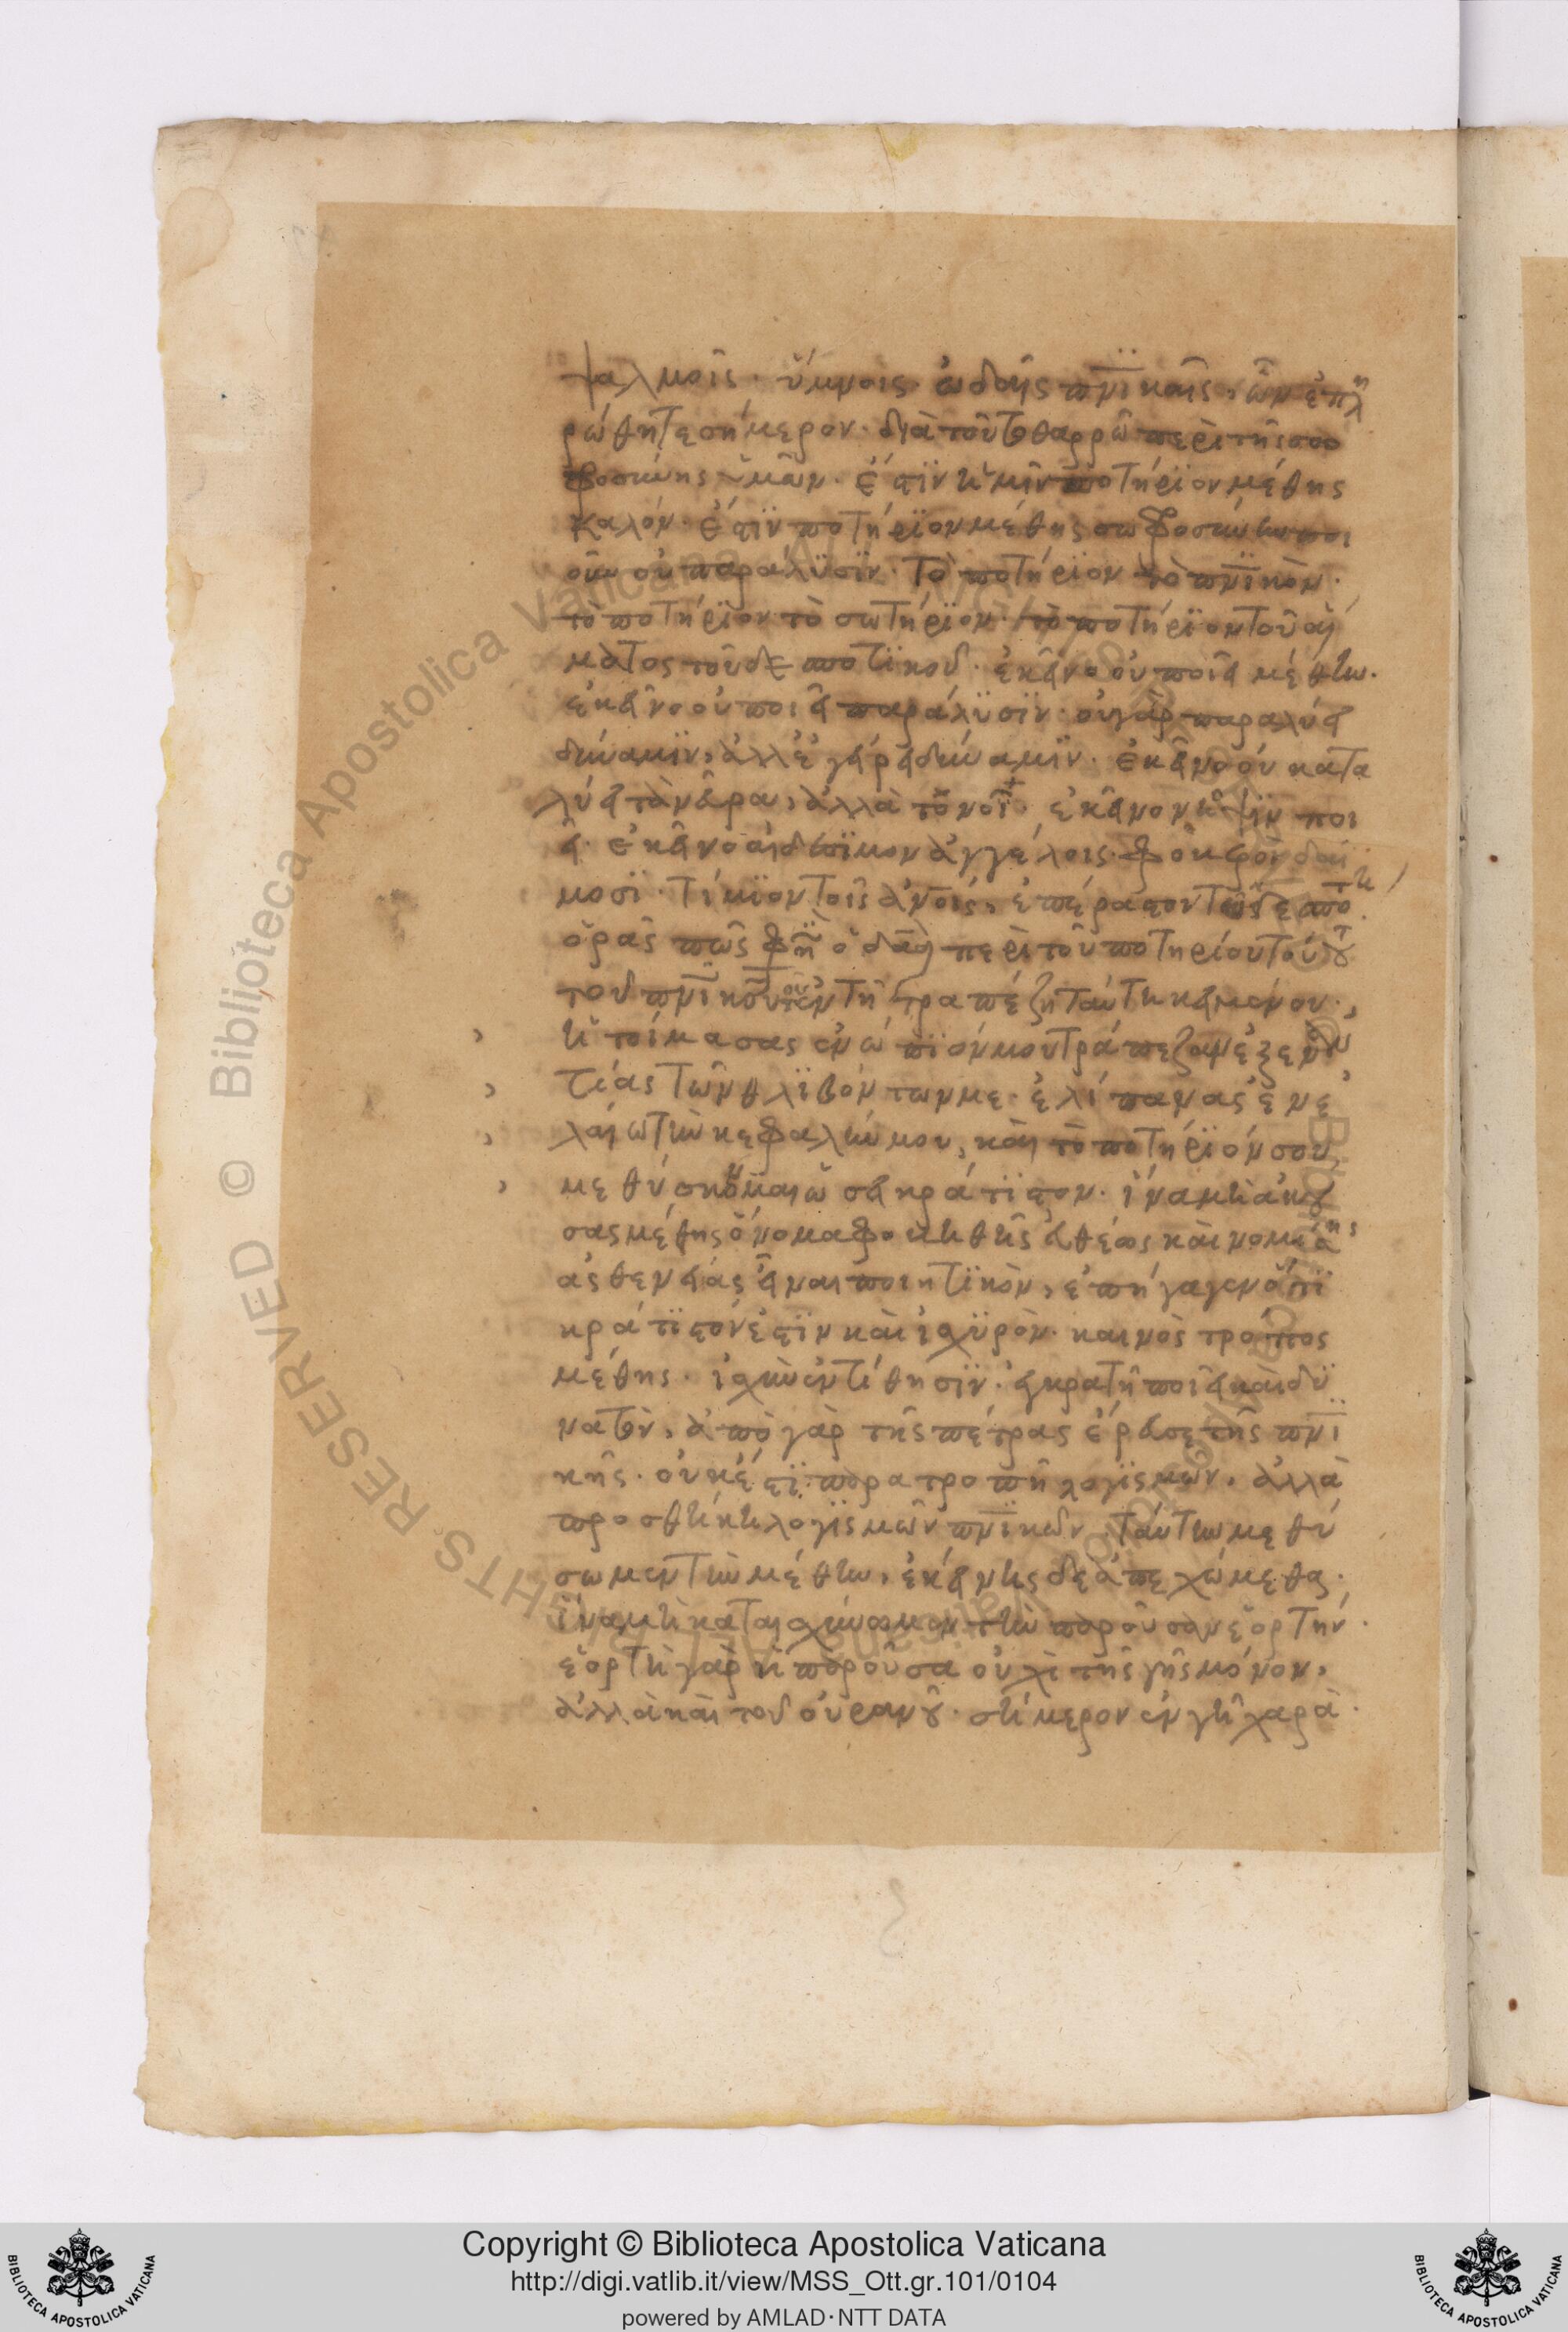 ψαλμοῖς· ὕμνοις· ὠδαῖς πνϊκαῖς, ὧν ἐπλη
ρώθητε σήμερον· διὰ τοῦτο θαρρῶ περὶ τῆς σω
φροσύνης ὑμῶν· ἔστιν ἡμῖν ποτήριον μέθης
καλόν· ἔστιν ποτήριον μέθης σωφροσύνην ποι
οῦν οὐ παράλυσιν· τὸ ποτήριον τὸ πνϊκὸν·
τὸ ποτήριον τὸ σωτήριον· τὸ ποτήριον τοῦ αἵ
ματος τοῦ δεσποτικοῦ· ἐκεῖνο οὐ ποιεῖ μέθην·
ἐκεῖνο οὐ ποιεῖ παράλυσιν· οὐ γὰρ παραλύει
δύναμιν, ἀλλ' ἐγείρει δύναμιν· ἐκεῖνο οὐ κατα
λύει τὰ νεῦρα, ἀλλὰ τονοῖ· ἐκεῖνο νῆψιν ποι
εῖ· ἐκεῖνο αἰδέσιμον ἀγγέλοις· φοβερὸν δαί
μοσι· τίμιον τοῖς ἀνοις, ἐπέραστον τῷ δεσπότῃ
ὁρᾶς πῶς φησὶ ὁ δαδ περὶ τοῦ ποτηρίου τούτου
τοῦ πνϊκοῦ τοῦ ἐν τῇ τραπέζῃ ταύτῃ κειμένου·
ἡτοίμασας ἐνώπιόν μου τράπεζαν ἐξεναν
τίας τῶν θλιβόντων με· ἐλίπανας ἐν ἐ
λαίω τὴν κεφαλήν μου, καὶ τὸ ποτήριόν σου
μεθύσκον με ὡσεὶ κράτιστον· ἵνα μὴ ἀκού
σας μέθης ὄνομα φοβηθῆς εὐθέως καὶ νομίσης
ἀσθενείας εἶναι ποιητικὸν, ἐπήγαγεν ὅτι
κράτιστόν ἐστιν καὶ ἰσχυρόν· καινὸς τρόπος
μέθης· ἰσχὺν ἐντίθησιν· εὐκρατῆ ποιεῖ καὶ δυ
νατὸν, ἀπὸ γὰρ τῆς πέτρας ἔρευσε τῆς πνϊ
κῆς· οὐκ ἔστι παρατροπὴ λογισμῶν, ἀλλὰ
προσθήκη λογισμῶν πνϊκῶν· ταύτην μεθύ
σωμεν τὴν μέθην, ἐκείνης δὲ ἀπεχώμεθα·
ἵνα μὴ καταισχύνωμεν τὴν παροῦσαν ἑορτήν·
ἑορτὴ γὰρ ἡ παροῦσα οὐχὶ τῆς γῆς μόνον,
ἀλλὰ καὶ τοῦ οὐρανοῦ· σήμερον ἐν γῇ χαρὰ·
RIGHTS RESERVED © Biblioteca Apostolica Vaticana
Copyright © Biblioteca Apostolica Vaticana
http://digi.vatlib.it/view/MSS_Ott.gr.101/0104
powered by AMLAD·NTT DATA
BIBLIOTECA APOSTOLICA VATICANA
BIBLIOTECA APOSTOLICA VATICANA